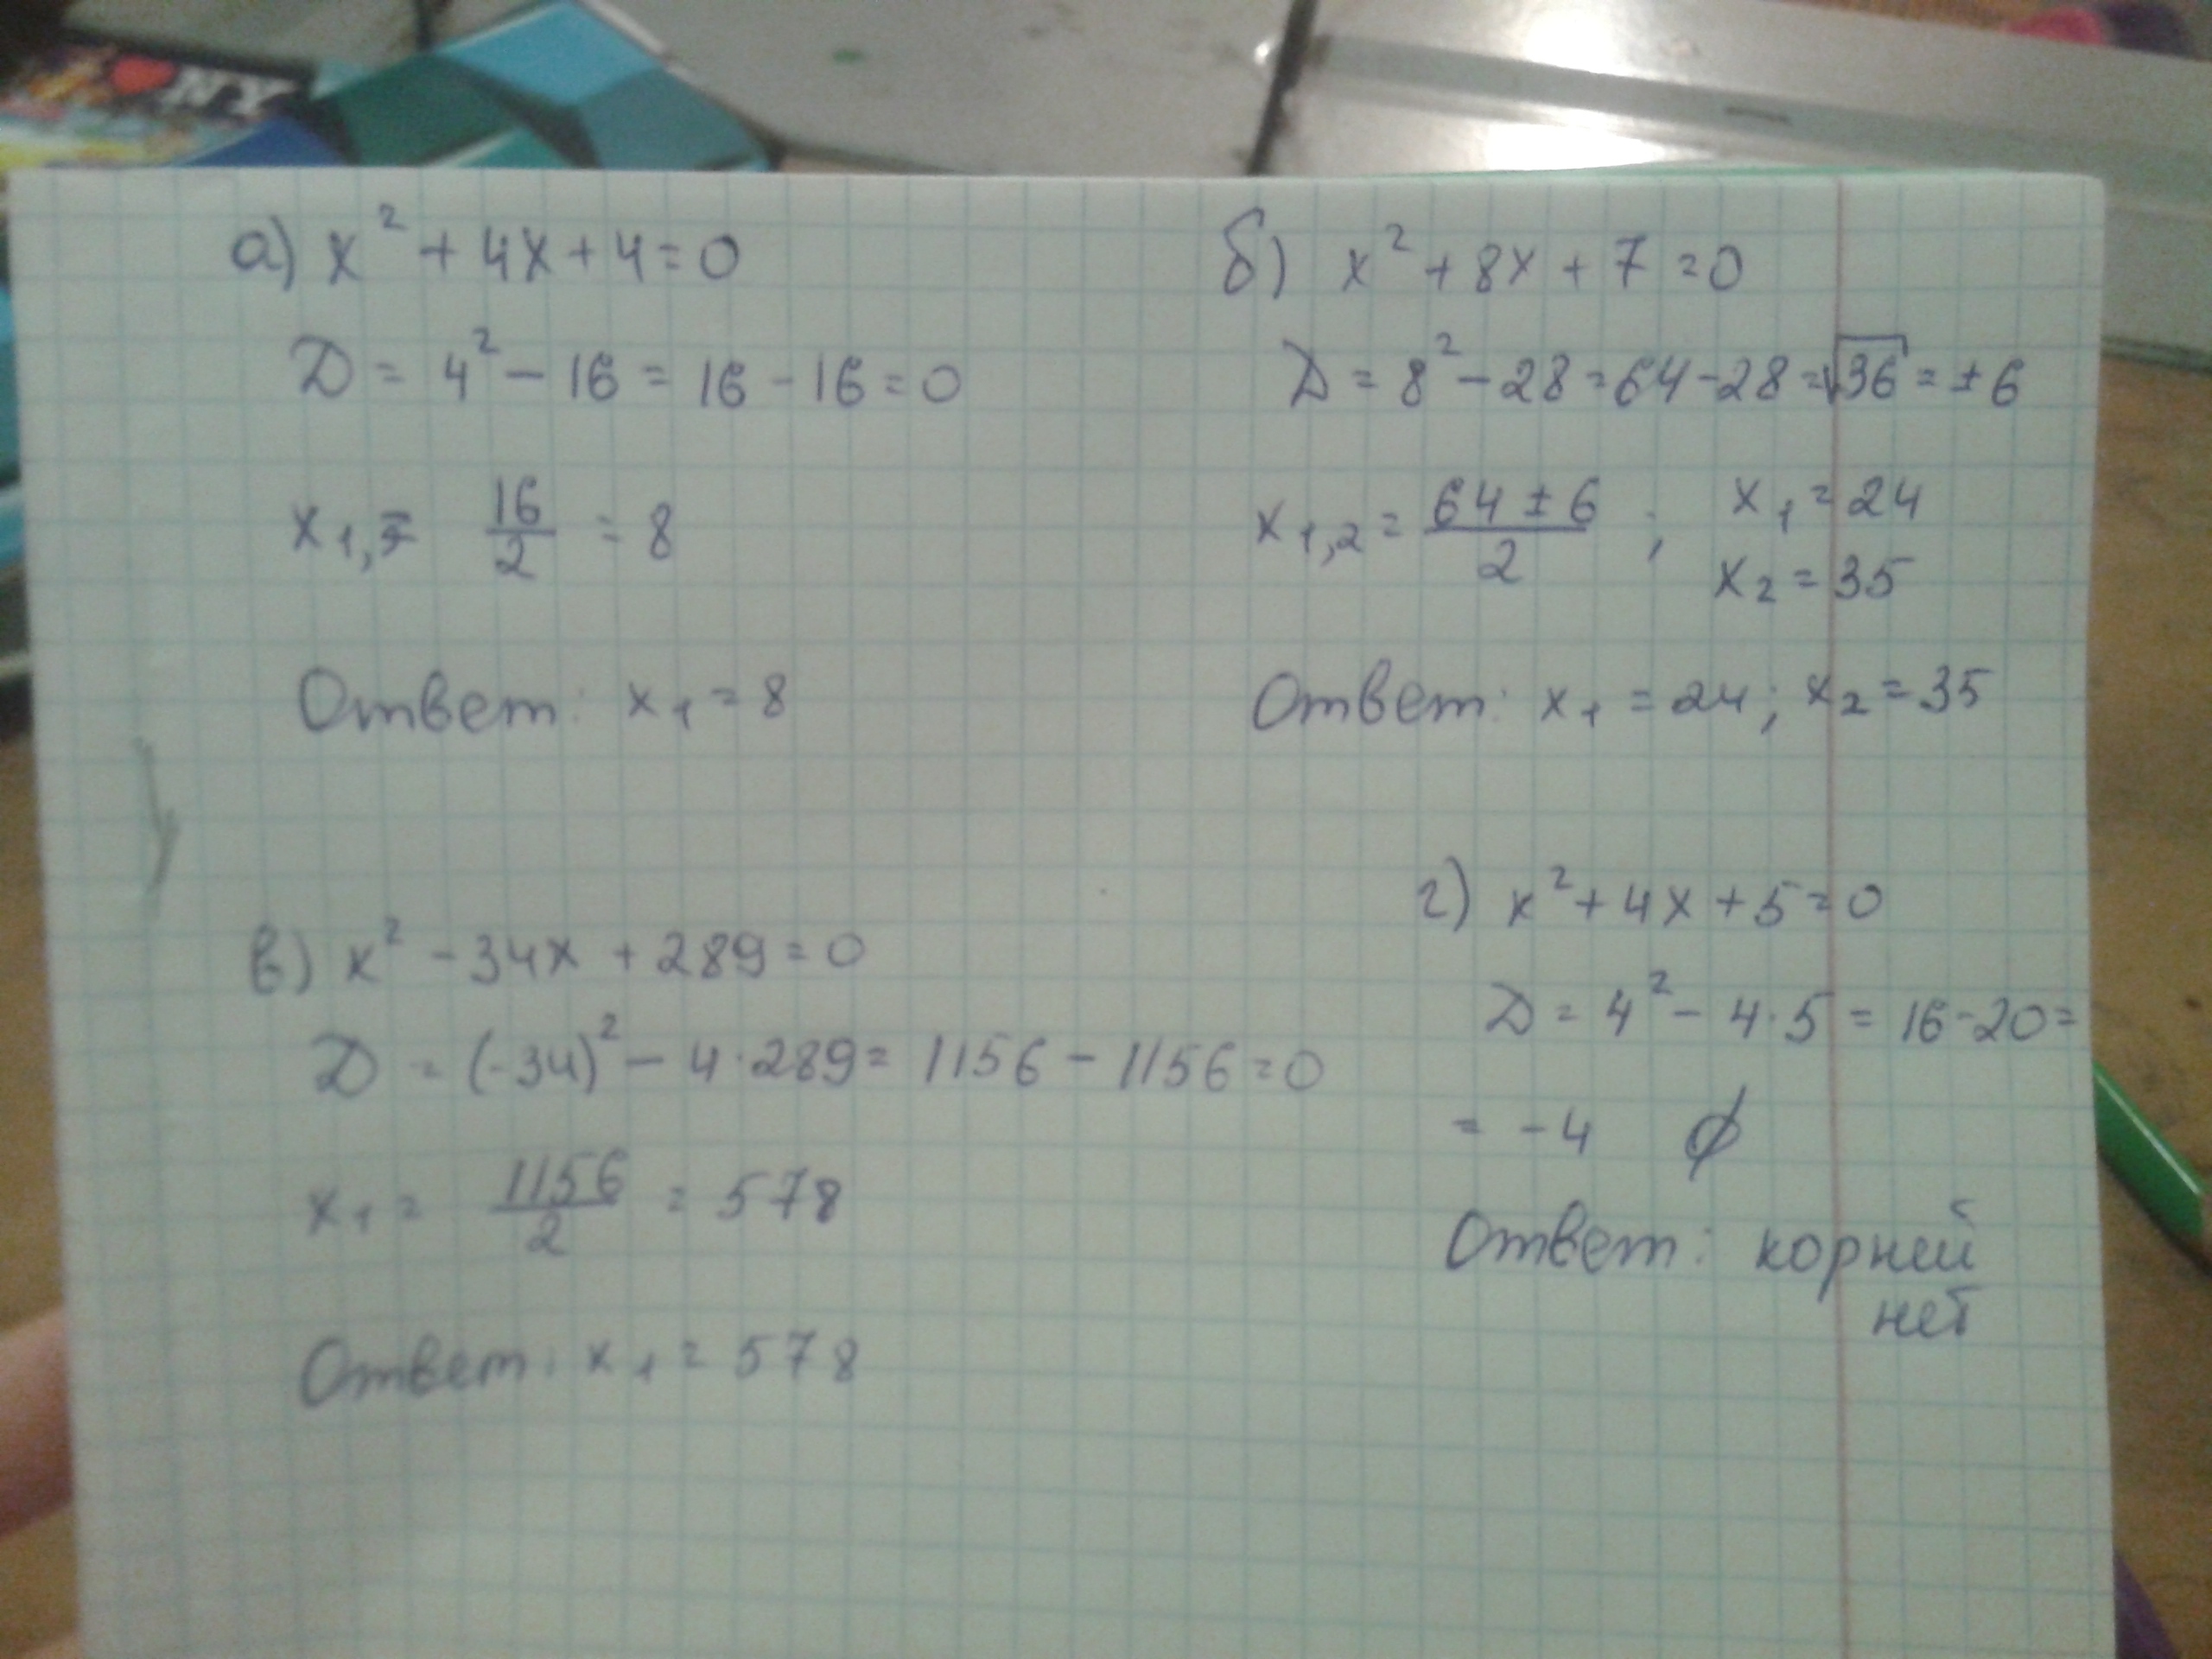 NY
а) x² + 4x + 4 = 0
D = 4² − 16 = 16 − 16 = 0
x₁, = 16/2 = 8
Ответ: x₁ = 8
б) x² + 8x + 7 = 0
D = 8² − 28 = 64 − 28 = √36 = ±6
x₁,₂ = (64 ± 6)/2 ; x₁ = 24
x₂ = 35
Ответ: x₁ = 24; x₂ = 35
в) x² − 34x + 289 = 0
D = (-34)² − 4·289 = 1156 − 1156 = 0
x₁ = 1156/2 = 578
Ответ: x₁ = 578
г) x² + 4x + 5 = 0
D = 4² − 4·5 = 16 − 20 =
= −4 ∅
Ответ: корней
нет